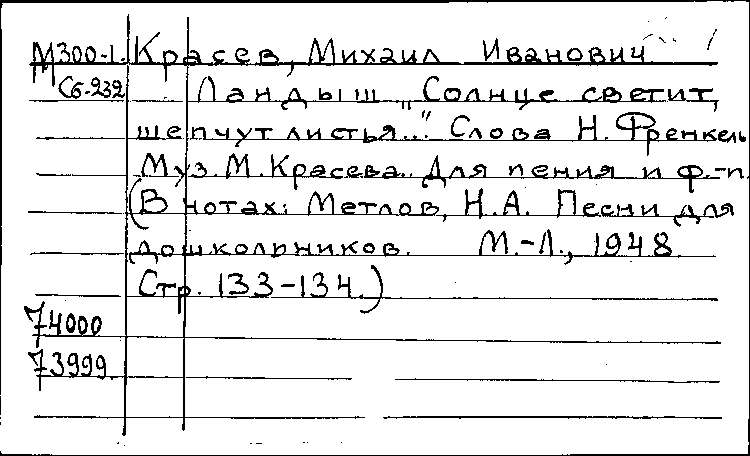 М300-1. Красев, Михаил Иванович
Сб-232 Ландыш „Солнце светит,
шепчут листья..." Слова Н. Френкель
Муз. М. Красева. Для пения и ф.-п.
(В нотах: Метлов, Н.А. Песни для
дошкольников. М.-Л., 1948
Стр. 133-134.)
74000
73999